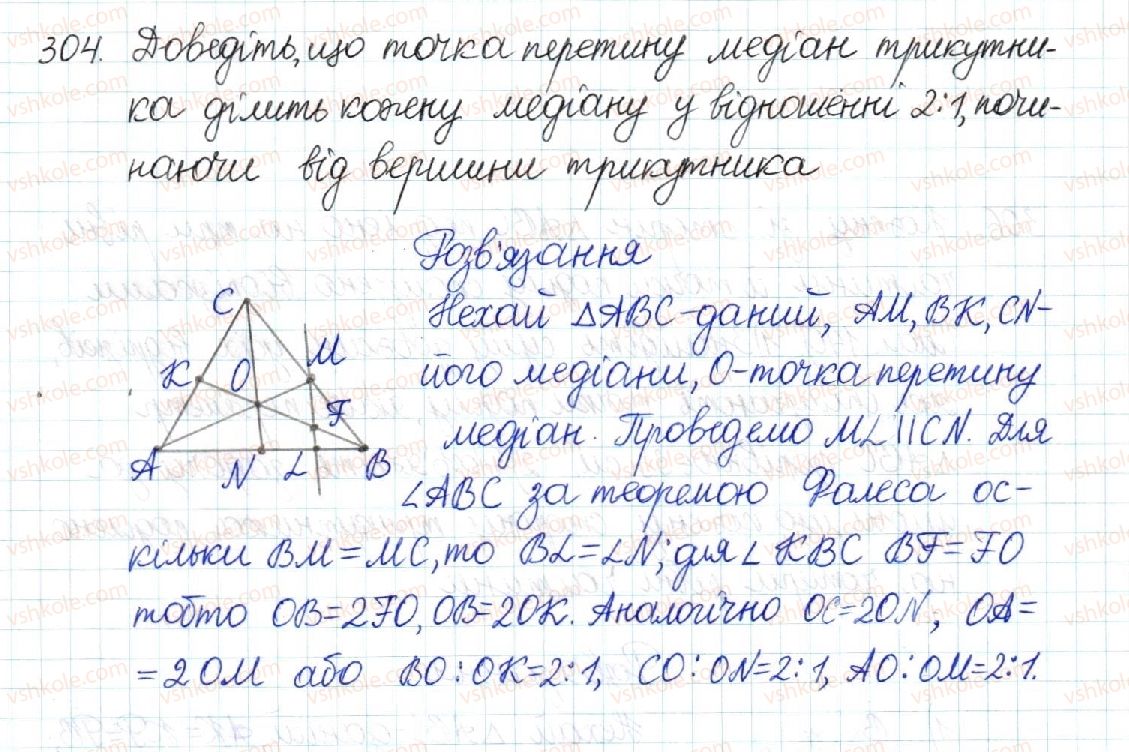 304. Доведіть, що точка перетину медіан трикутни-
ка ділить кожну медіану у відношенні 2:1, почи-
наючи від вершини трикутника
Розв'язання
Нехай △ABC - даний, AM, BK, CN -
його медіани, O - точка перетину
медіан. Проведемо ML || CN. Для
∠ABC за теоремою Фалеса ос-
кільки BM = MC, то BL = LN; для ∠KBC BF = FO
тобто OB = 2FO, OB = 2OK. Аналогічно OC = 2ON, OA =
= 2OM або BO : OK = 2:1, CO : ON = 2:1, AO : OM = 2:1.
C
M
K O
F
A N L B
vshkole.com